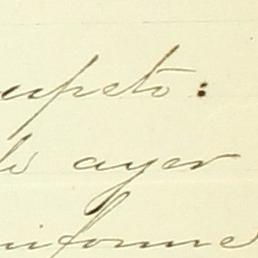 upeto:
de ayer
niforme